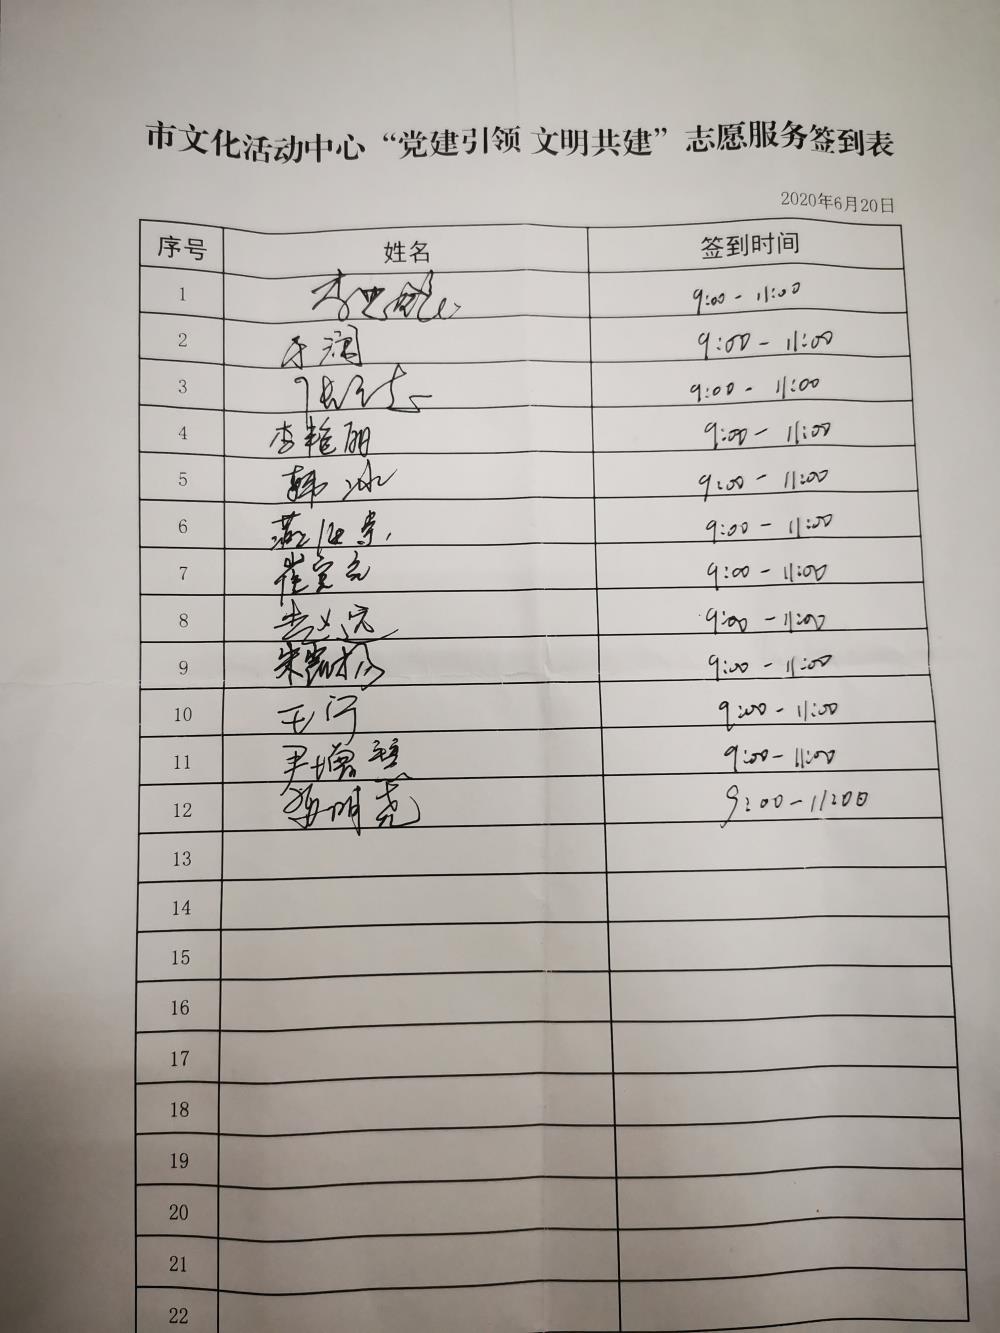 市文化活动中心“党建引领 文明共建”志愿服务签到表
2020年6月20日
序号 姓名 签到时间
1 9:00 - 11:00
2 于澜 9:00 - 11:00
3 9:00 - 11:00
4 李艳丽 9:00 - 11:00
5 韩冰 9:00 - 11:00
6 9:00 - 11:00
7 9:00 - 11:00
8 9:00 - 11:00
9 9:00 - 11:00
10 9:00 - 11:00
11 9:00 - 11:00
12 9:00 - 11:00
13
14
15
16
17
18
19
20
21
22